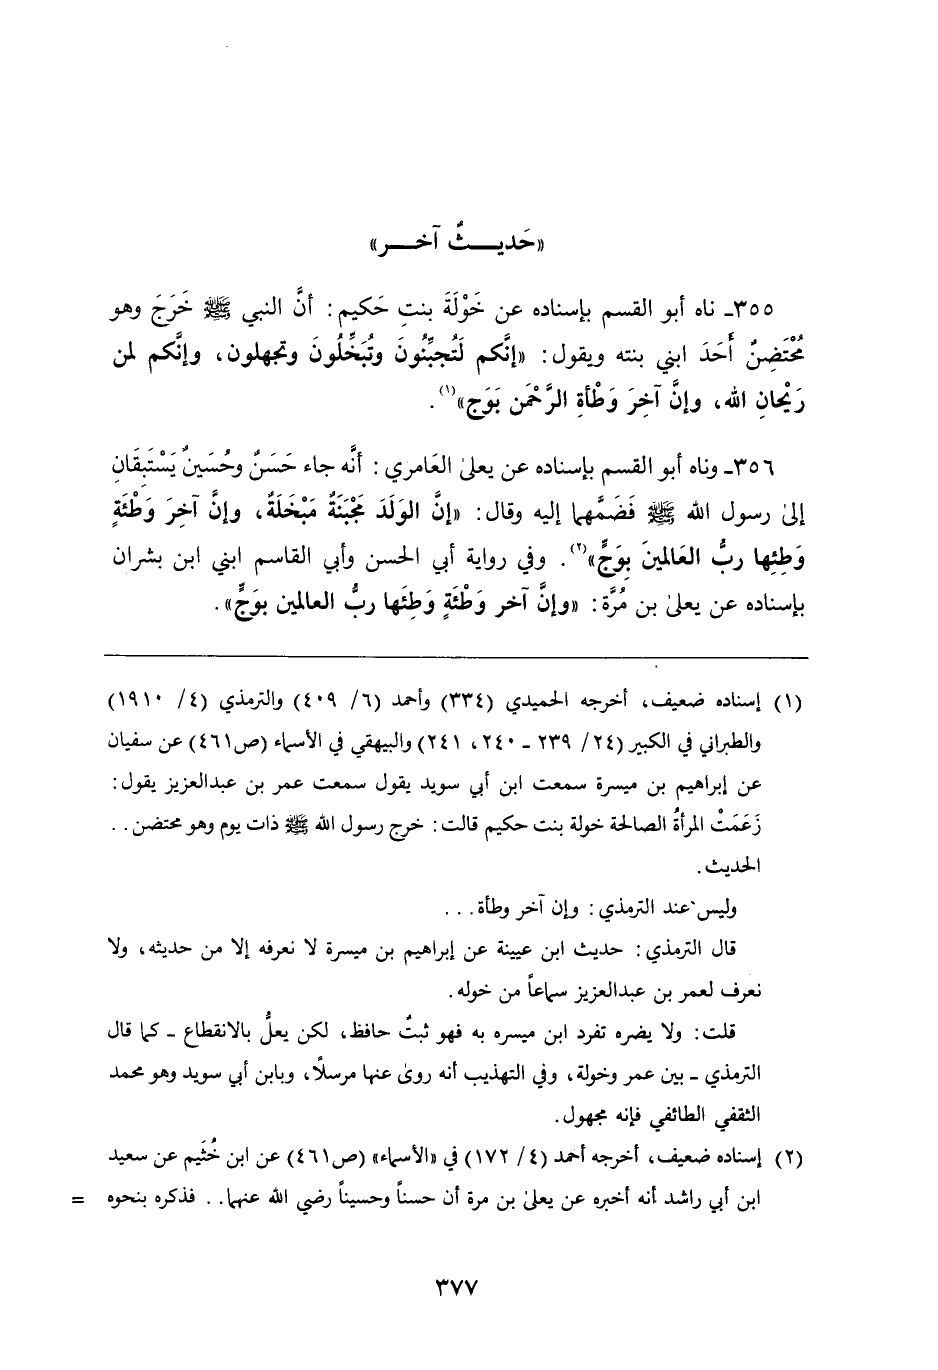 «حَديـــثٌ آخـــر»
٣٥٥ـ ناه أبو القسم بإسناده عن خَوْلَةَ بنتِ حَكيم: أنَّ النبي ﷺ خَرَجَ وهو
مُحْتَضِنٌ أَحَدَ ابني بنته ويقول: «إنَّكم لَتُجبِّنُونَ وتُبَخِّلُونَ وتجهلون، وإنَّكم لمن
رَيْحانِ الله، وإنَّ آخِرَ وَطْأةِ الرَّحْمَن بَوَج»(١).
٣٥٦ـ وناه أبو القسم بإسناده عن يعلىٰ العَامري: أنَّه جاء حَسَنٌ وحُسَينٌ يَسْتَبِقَانِ
إلىٰ رسول الله ﷺ فَضَمَّهما إليه وقال: «إنَّ الوَلَدَ مَجْبَنَةٌ مَبْخَلَةٌ، وإنَّ آخِرَ وَطْئَةٍ
وَطِئِها ربُّ العَالمينَ بِوَجٍّ»(٢). وفي رواية أبي الحسن وأبي القاسم ابني ابن بشران
بإسناده عن يعلىٰ بن مُرَّة: «وإنَّ آخر وَطْئَةٍ وَطِئَها ربُّ العالمين بوَجٍّ».
(١) إسناده ضعيف، أخرجه الحميدي (٣٣٤) وأحمد (٦/ ٤٠٩) والترمذي (٤/ ١٩١٠)
والطبراني في الكبير (٢٤/ ٢٣٩ ـ ٢٤٠، ٢٤١) والبيهقي في الأسماء (ص٤٦١) عن سفيان
عن إبراهيم بن ميسرة سمعت ابن أبي سويد يقول سمعت عمر بن عبدالعزيز يقول:
زَعَمَتْ المرأةُ الصالحة خولة بنت حكيم قالت: خرج رسول الله ﷺ ذات يوم وهو محتضن..
الحديث.
وليس عند الترمذي: وإن آخر وطأة...
قال الترمذي: حديث ابن عيينة عن إبراهيم بن ميسرة لا نعرفه إلا من حديثه، ولا
نعرف لعمر بن عبدالعزيز سماعاً من خوله.
قلت: ولا يضره تفرد ابن ميسره به فهو ثبتٌ حافظ، لكن يعلُّ بالانقطاع ـ كما قال
الترمذي ـ بين عمر وخولة، وفي التهذيب أنه روىٰ عنها مرسلًا، وبابن أبي سويد وهو محمد
الثقفي الطائفي فإنه مجهول.
(٢) إسناده ضعيف، أخرجه أحمد (٤/ ١٧٢) في «الأسماء» (ص٤٦١) عن ابن خُثَيم عن سعيد
ابن أبي راشد أنه أخبره عن يعلىٰ بن مرة أن حسناً وحسيناً رضي الله عنهما.. فذكره بنحوه =
٣٧٧